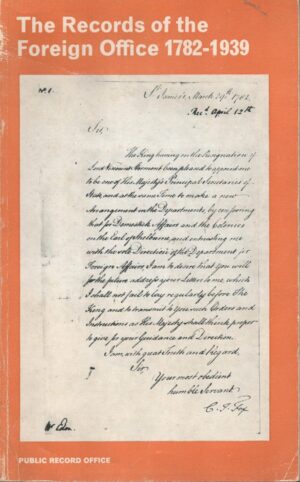 The Records of the
Foreign Office 1782-1939
Nº. 1.
St. James's, March 29th. 1782.
Recd. April 12th
Sir,
The King having on the Resignation of
Lord Viscount Stormont been pleased to appoint me
to be one of His Majesty's Principal Secretaries of
State, and at the same Time to make a new
Arrangement in the Departments, by conferring
that for Domestick Affairs and the Colonies
on the Earl of Shelburne, and entrusting me
with the sole Direction of the Department for
Foreign Affairs, I am to desire that You will
for the future address your Letters to me, which
I shall not fail to lay regularly before The
King and to transmit to You such Orders and
Instructions as His Majesty shall think proper
to give for your Guidance and Direction.
I am with great Truth and Regard,
Sir
Your most obedient
humble Servant
C. J. Fox
Mr Eden.
PUBLIC RECORD OFFICE